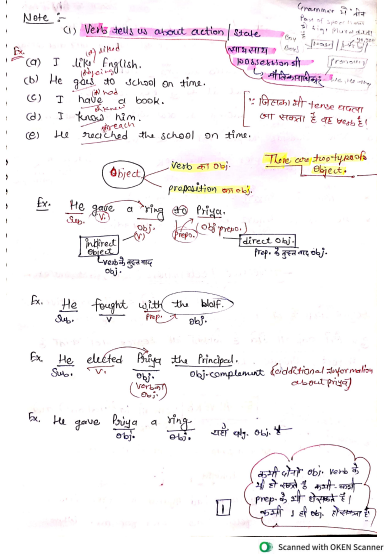 Note :-
(1) Verb tells us about action / State
साथ साथ possession भी
Ex.
(a) I like English.
(b) He goes to school on time.
(c) I have a book.
(d) I know him.
(e) He reached the school on time.
∵ जिसका भी tense बदला जा सकता है वह verb है।
Object
Verb का obj.
preposition का obj.
There are two types of Object.
Ex. He gave a ring to Priya.
Sub. V. Obj. Prepo. (Obj prepo.)
indirect object
direct obj.
Verb के तुरन्त बाद obj.
Prep. के तुरन्त बाद obj.
Ex. He fought with the wolf.
Sub. V Prep. Obj.
Ex. He elected Priya the Principal.
Sub. V. Obj. Obj-complement (additional information about priya)
(Verb का Obj.)
Ex. He gave Priya a ring.
Obj. Obj.
कभी दोनों obj. verb के
भी हो सकते है कभी-कभी
prep. के भी हो सकते है।
कभी 1 ही obj. हो सकता है।
1
Scanned with OKEN Scanner